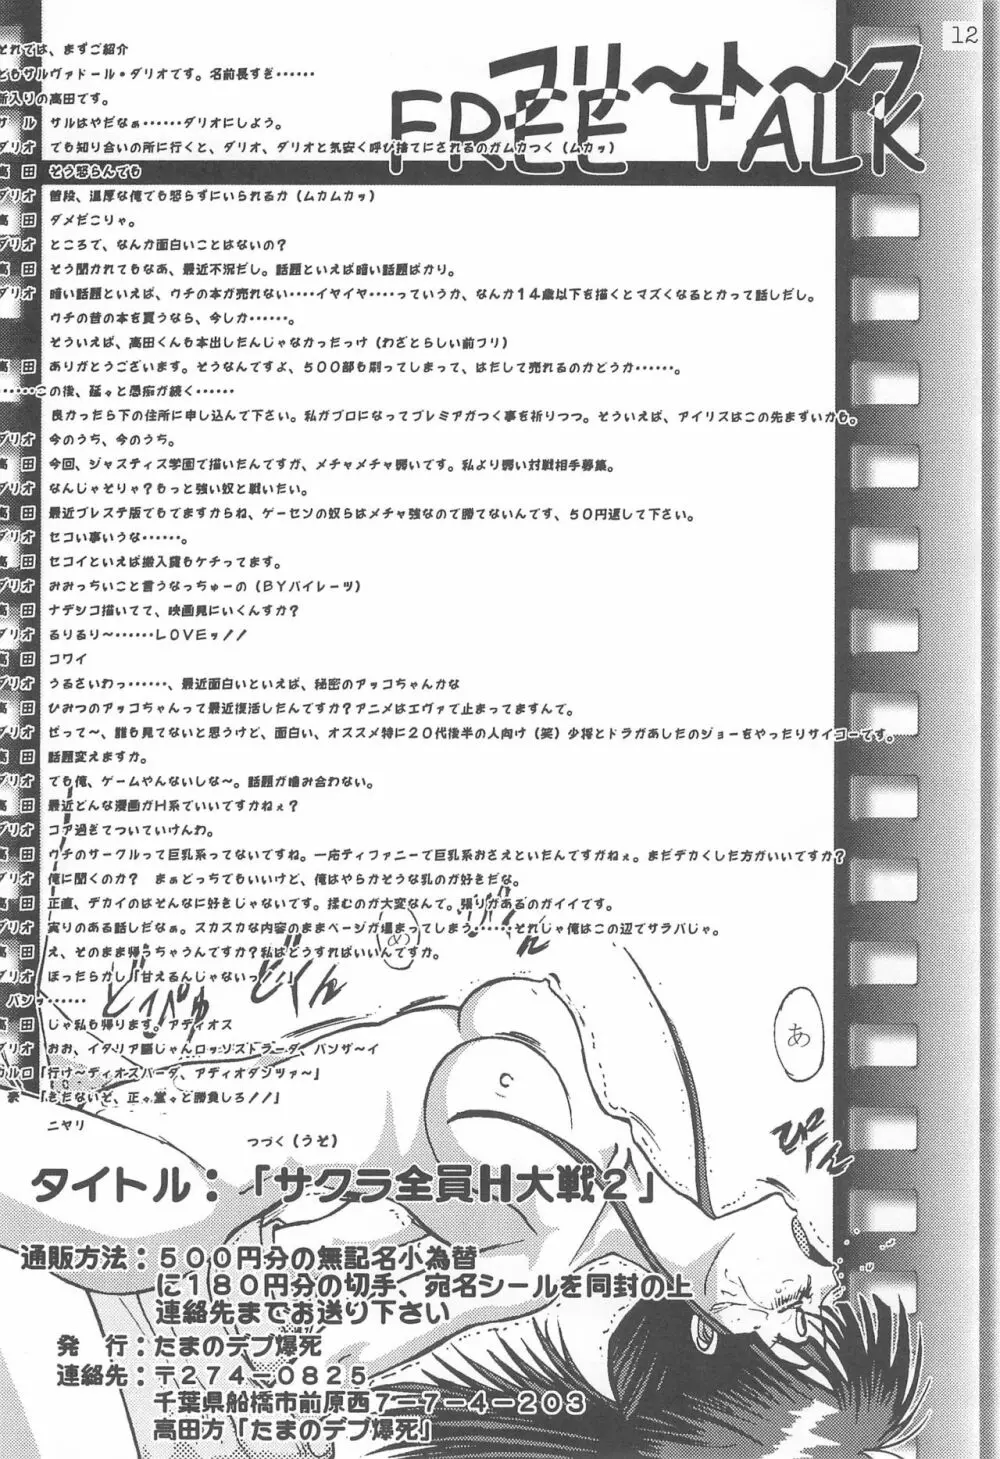 12
フリ～ト～ク
FREE TALK
それでは、まずご紹介
どもサルヴァドール・ダリオです。名前長すぎ‥‥‥
新入りの高田です。
サル サルはやだなぁ‥‥‥ダリオにしよう。
ダリオ でも知り合いの所に行くと、ダリオ、ダリオと気安く呼び捨てにされるのがムカつく（ムカッ）
高田 そう怒らんでも
ダリオ 普段、温厚な俺でも怒らずにいられるか（ムカムカッ）
高田 ダメだこりゃ。
ダリオ ところで、なんか面白いことはないの？
高田 そう聞かれてもなあ、最近不況だし。話題といえば暗い話題ばかり。
ダリオ 暗い話題といえば、ウチの本が売れない‥‥イヤイヤ‥‥っていうか、なんか14歳以下を描くとマズくなるとかって話しだし。
ウチの昔の本を買うなら、今しか‥‥‥。
そういえば、高田くんも本出したんじゃなかったっけ（わざとらしい前フリ）
高田 ありがとうございます。そうなんですよ、500部も刷ってしまって、はたして売れるのかどうか‥‥‥。
‥‥‥この後、延々と愚痴が続く‥‥‥
良かったら下の住所に申し込んで下さい。私がプロになってプレミアがつく事を祈りつつ。そういえば、アイリスはこの先まずいかも。
ダリオ 今のうち、今のうち。
高田 今回、ジャスティス学園で描いたんですが、メチャメチャ弱いです。私より弱い対戦相手募集。
ダリオ なんじゃそりゃ？もっと強い奴と戦いたい。
高田 最近プレステ版もでてますからね、ゲーセンの奴らはメチャ強なので勝てないんです、50円返して下さい。
ダリオ セコい事いうな‥‥‥。
高田 セコイといえば搬入費もケチってます。
ダリオ みみっちいこと言うなっちゅーの（BYパイレーツ）
高田 ナデシコ描いてて、映画見にいくんすか？
ダリオ るりるり～‥‥‥LOVEッ！！
高田 コワイ
ダリオ うるさいわっ‥‥‥、最近面白いといえば、秘密のアッコちゃんかな
高田 ひみつのアッコちゃんって最近復活したんですか？アニメはエヴァで止まってますんで。
ダリオ ぜって～、誰も見てないと思うけど、面白い、オススメ特に20代後半の人向け（笑）少将とドラがあしたのジョーをやったりサイコーです。
高田 話題変えますか。
ダリオ でも俺、ゲームやんないしな～。話題が噛み合わない。
高田 最近どんな漫画がH系でいいですかねぇ？
ダリオ コア過ぎてついていけんわ。
高田 ウチのサークルって巨乳系ってないですね。一応ティファニーで巨乳系おさえといたんですがねぇ。まだデカくした方がいいですか？
ダリオ 俺に聞くのか？ まぁどっちでもいいけど、俺はやらかそうな乳のが好きだな。
高田 正直、デカイのはそんなに好きじゃないです。揉むのが大変なんで。張りがあるのがイイです。
ダリオ 実りのある話しだなぁ。スカスカな内容のままページが埋まってしまう‥‥‥それじゃ俺はこの辺でサラバじゃ。
高田 え、そのまま帰っちゃうんですか？私はどうすればいいんですか。
ダリオ ほったらかし「甘えるんじゃないっ！！」
バンッ‥‥‥
高田 じゃ私も帰ります。アディオス
ダリオ おお、イタリア語じゃんロッソストラーダ、バンザ～イ
カルロ「行け～ディオスパーダ、アディオダンツァ～」
豪「きたないぞ、正々堂々と勝負しろ！！」
ニヤリ
つづく（うそ）
め
あ
タイトル：「サクラ全員H大戦2」
通販方法：500円分の無記名小為替
に180円分の切手、宛名シールを同封の上
連絡先までお送り下さい
発 行：たまのデブ爆死
連絡先：〒274-0825
千葉県船橋市前原西7-7-4-203
高田方「たまのデブ爆死」